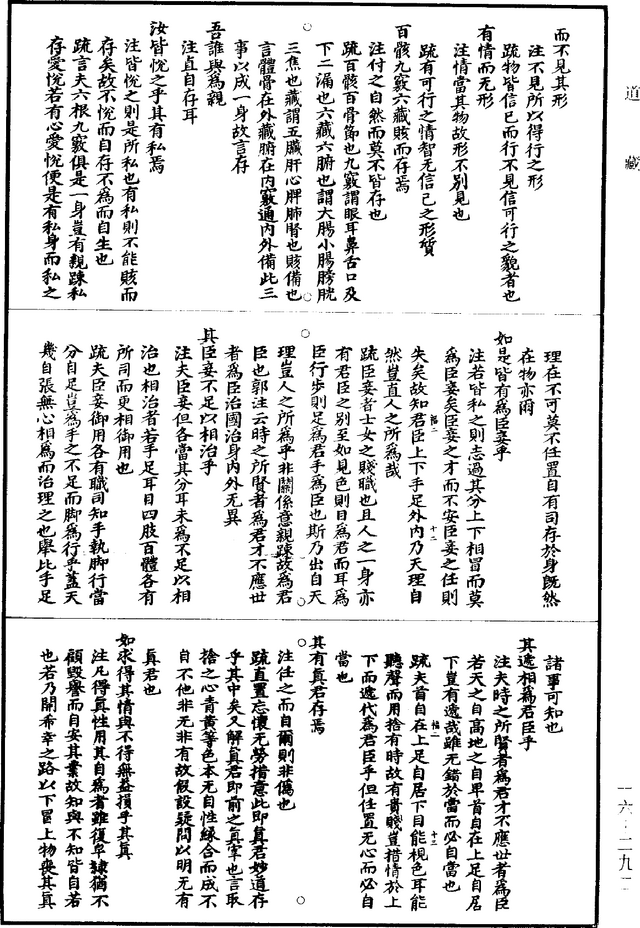 道藏
而不見其形
注不見所以得行之形
䟽物皆信已而行不見信可行之貌者也
有情而无形
注情當其物故形不別見也
䟽有可行之情智无信已之形質
百骸九竅六藏賅而存焉
注付之自然而莫不皆存也
䟽百骸百骨節也九竅謂眼耳鼻舌口及
下二漏也六藏六腑也謂大腸小腸膀胱
三焦也藏謂五臟肝心脾肺腎也賅備也
言體骨在外藏腑在内竅通内外備此三
事以成一身故言存
吾誰與為親
注直自存耳
汝皆悅之乎其有私焉
注皆悅之則是所私也有私則不能賅而
存矣故不悅而自存不為而自生也
䟽言夫六根九竅俱是一身豈有親踈私
存愛悅若有心愛悅便是有私身而私之
理在不可莫不任置自有司存於身既然
在物亦爾
如是皆有為臣妾乎
注若皆私之則志過其分上下相冒而莫
為臣妾矣臣妾之才而不安臣妾之任則
失矣故知君臣上下手足外内乃天理自
然豈直人之所為哉
䟽臣妾者士女之賤職也且人之一身亦
有君臣之別至如見色則目為君而耳為
臣行步則足為君手為臣也斯乃出自天
理豈人之所為乎非關係意親踈故為君
臣也郭注云時之所賢者為君才不應世
者為臣治國治身内外无異
其臣妾不足以相治乎
注夫臣妾但各當其分耳未為不足以相
治也相治者若手足耳目四肢百體各有
所司而更相御用也
䟽夫臣妾御用各有職司知手執脚行當
分自足豈為手之不足而脚為行乎蓋天
幾自張無心相為而治理之也舉此手足
諸事可知也
其遞相為君臣乎
注夫時之所賢者為君才不應世者為臣
若天之自高地之自卑首自在上足自居
下豈有遞哉雖无錯於當而必自當也
䟽夫首自在上足自居下目能視色耳能
聽聲而用捨有時故有貴賤豈措情於上
下而遞代為君臣乎但任置无心而必自
當也
其有真君存焉
注任之而自爾則非偽也
䟽直置忘懷无勞措意此即真君妙道存
乎其中矣又解真君即前之真宰也言取
捨之心青黃等色本无自性緣合而成不
自不他非无非有故假設疑問以明无有
真君也
如求得其情與不得無益損乎其真
注凡得真性用其自為者雖復皁隸猶不
顧毀譽而自安其業故知與不知皆自若
也若乃開希幸之路以下冒上物喪其真
一六·二九二